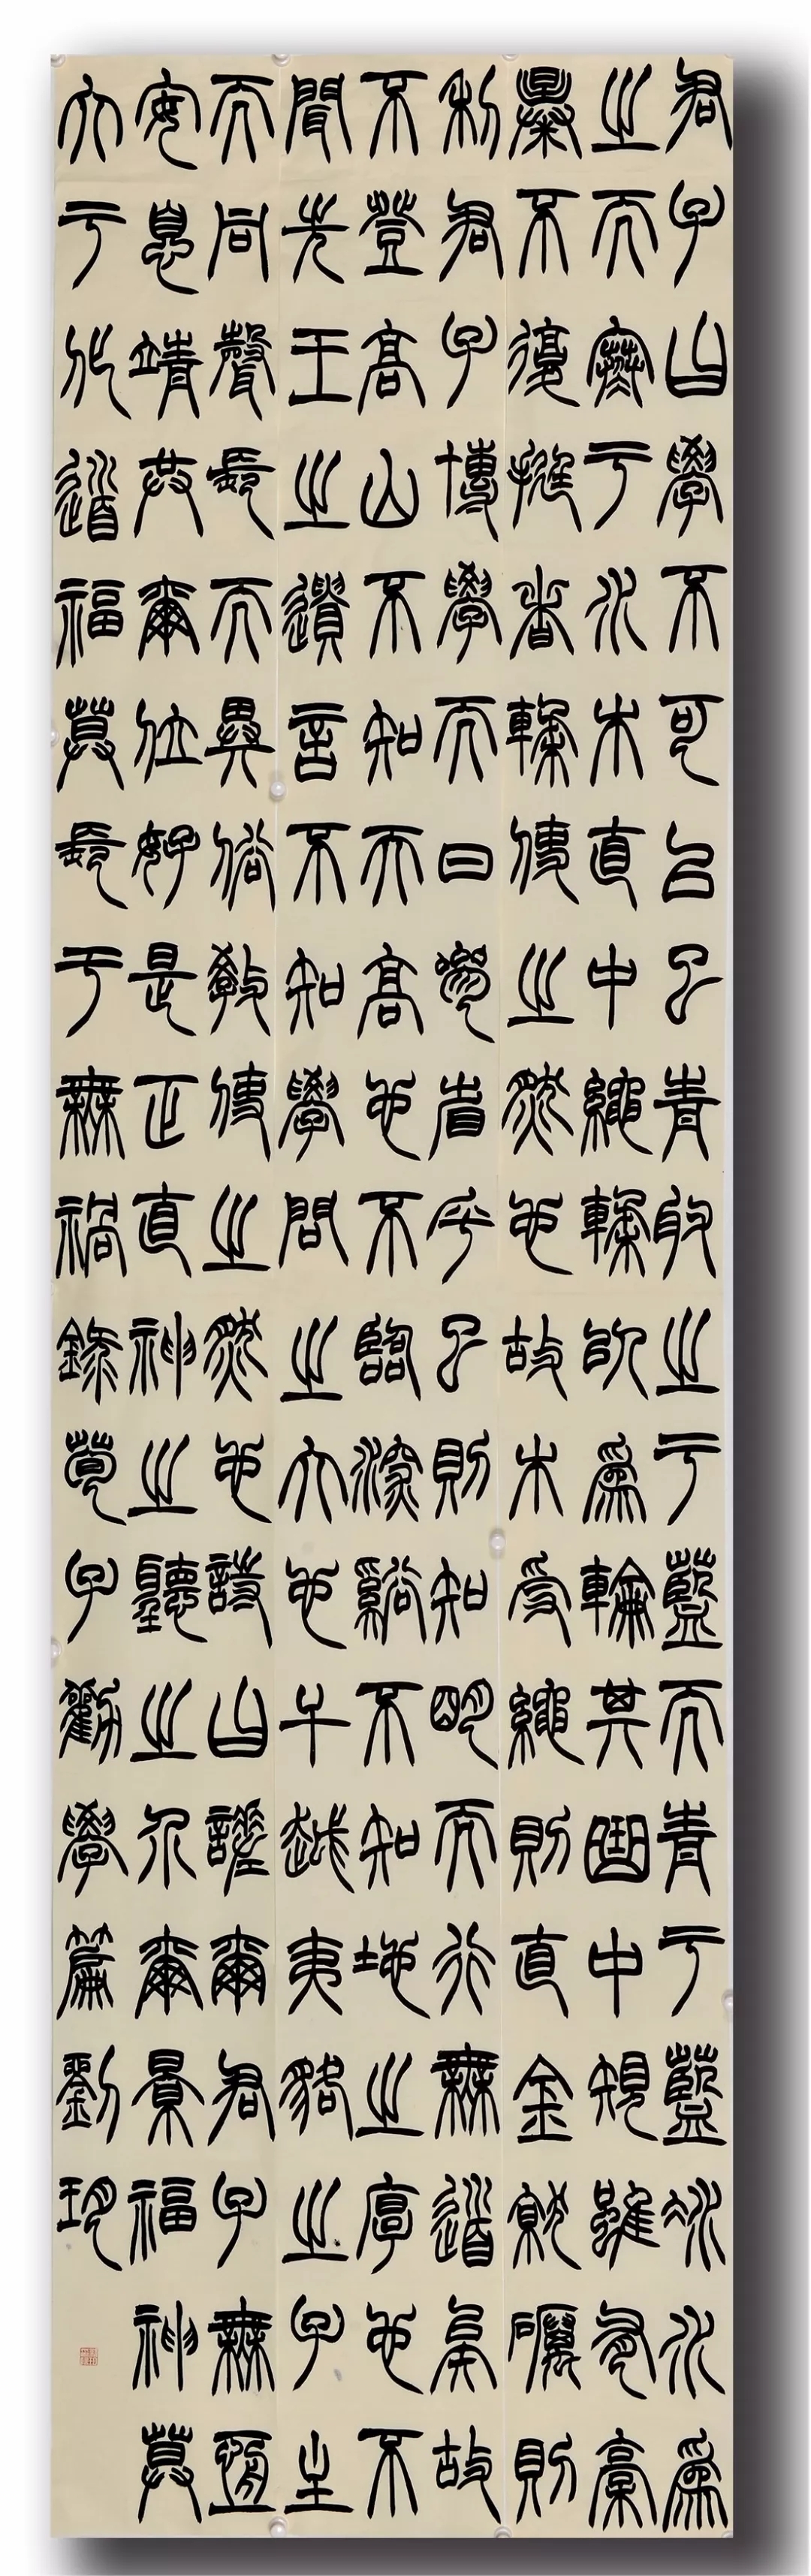 君子曰學不可以已青取之于藍而青于藍冰水爲
之而寒于水木直中繩輮以爲輪其曲中規雖有槁
暴不復挺者輮使之然也故木受繩則直金就礪則
利君子博學而日參省乎己則知明而行無過矣故
不登高山不知天高也不臨深谿不知地之厚也不
聞先王之遺言不知學問之大也干越夷貉之子生
而同聲長而異俗教使之然也詩曰嗟爾君子無恒
安息靖共爾位好是正直神之聽之介爾景福神莫
大于化道福莫長于無禍錄荀子勸學篇劉